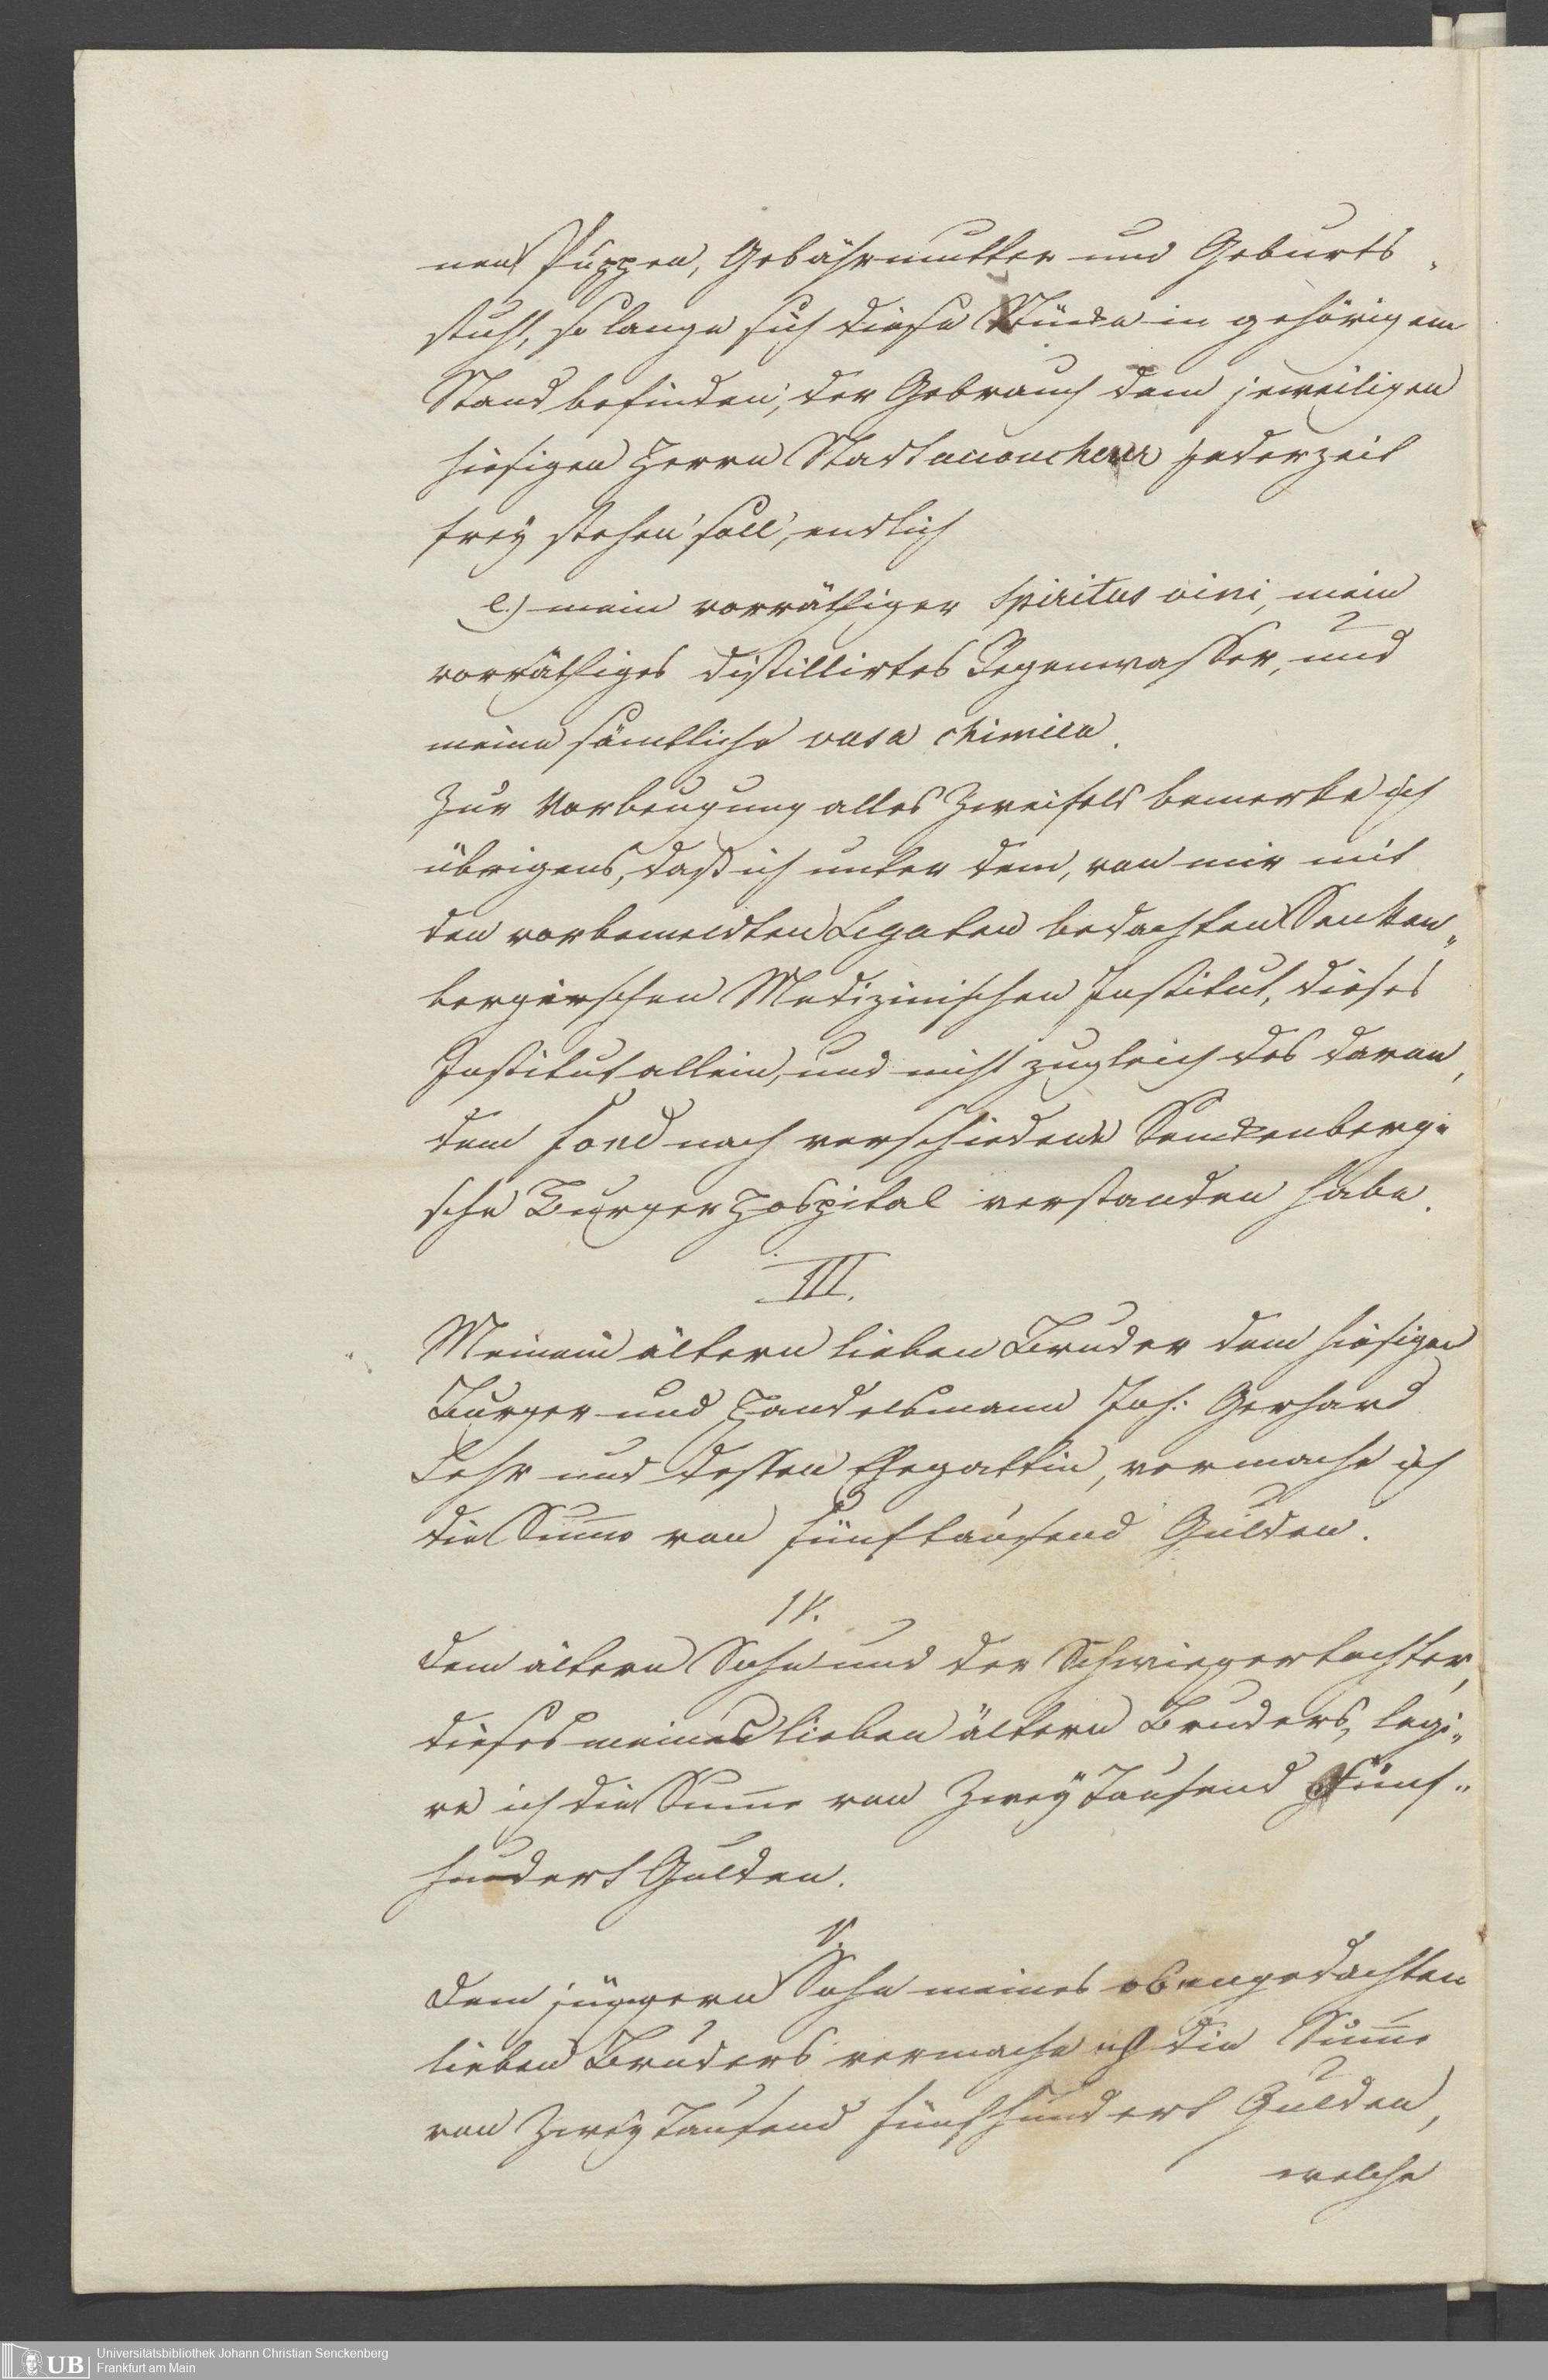 nen Puppen, Gebährmutter und Geburts-
stuhl, so lange sich diese Stücke in gehörigem
Stand befinden, der Gebrauch dem jeweiligen
hiesigen Herrn Stadtaccoucheur jederzeit
frey stehen soll, endlich
e.) mein vorräthiger Spiritus vini, mein
vorräthiges distillirtes Regenwasser, und
meine sämtliche vasa chimica.
Zur Vorbeugung alles Zweifels bemerke ich
übrigens, daß ich unter dem, von mir mit
den vorbemeldten Legaten bedachten Senken„
bergischen Medizinischen Institut, dieses
Institut allein, und nicht zugleich das davon,
dem Fond nach verschiedene Senckenberg„
sche Burger Hospital verstanden habe.
III.
Meinem ältern lieben Bruder dem hiesigen
Burger und Handelsmann Joh: Gerhard
Lehr und dessen Ehegattin, vermache ich
die Sum̄e von fünftausend Gulden.
IV.
Dem ältern Sohn und der Schwiegertochter,
dieses meines lieben ältern Bruders, legi„
re ich die Sum̄e von Zwey Tausend Fünf„
hundert Gulden.
V.
Dem jüngern Sohn meines obengedachten
lieben Bruders vermache ich die Sum̄e
von Zwey Tausend fünfhundert Gulden,
welche
UB
Universitätsbibliothek Johann Christian Senckenberg
Frankfurt am Main